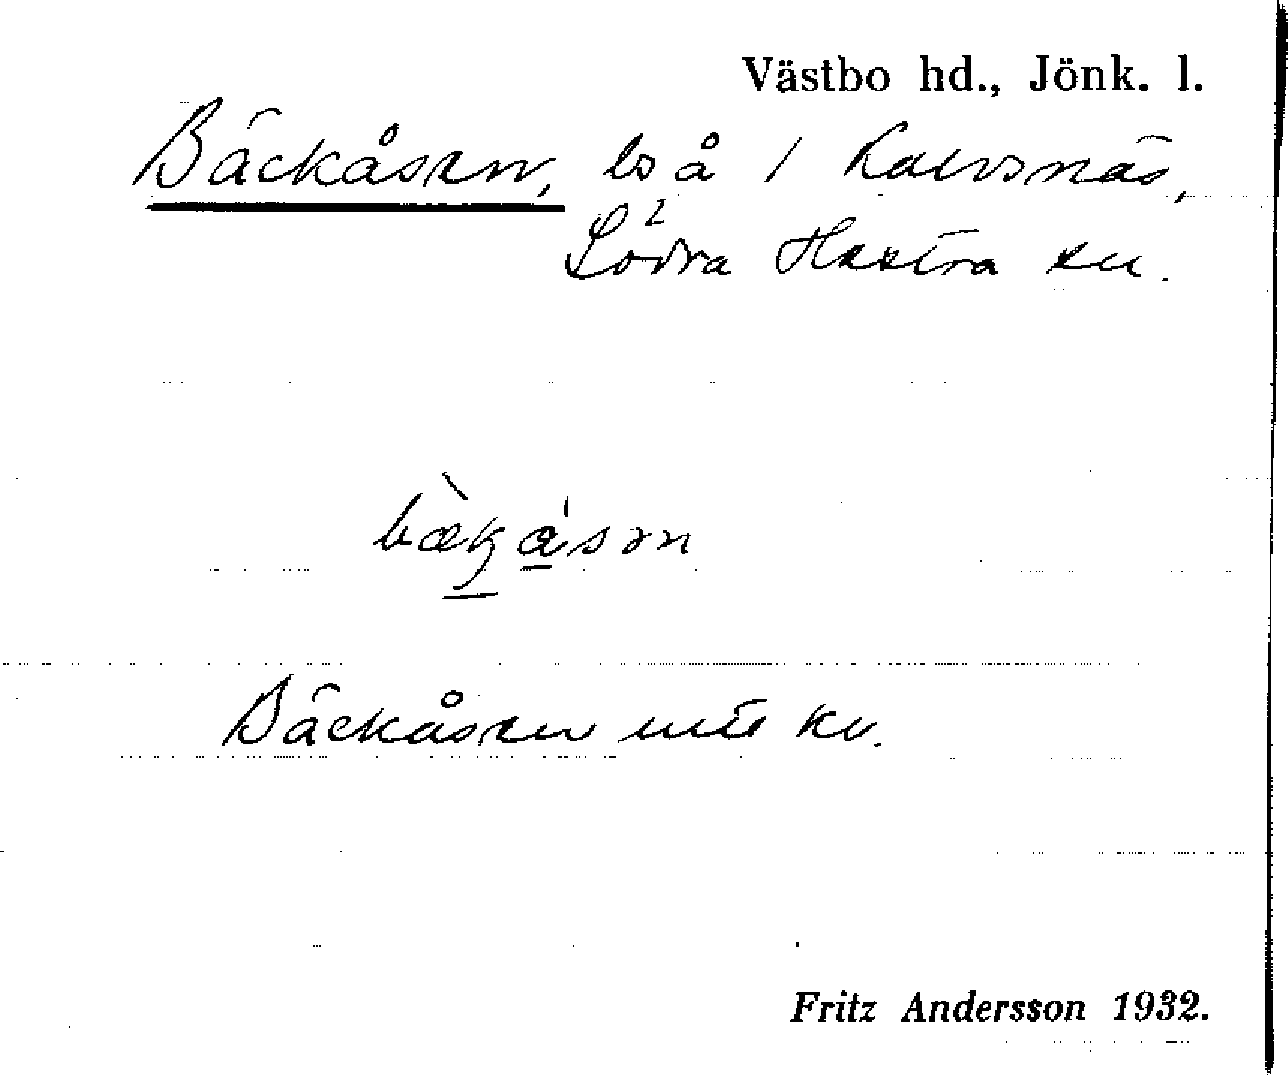 Västbo hd., Jönk. l.
Bäckåsen, ls å 1 Kalvsnäs,
Södra Hestra sn.
bæk̠a̠sən
Bäckåsen mtl kv.
Fritz Andersson 1932.